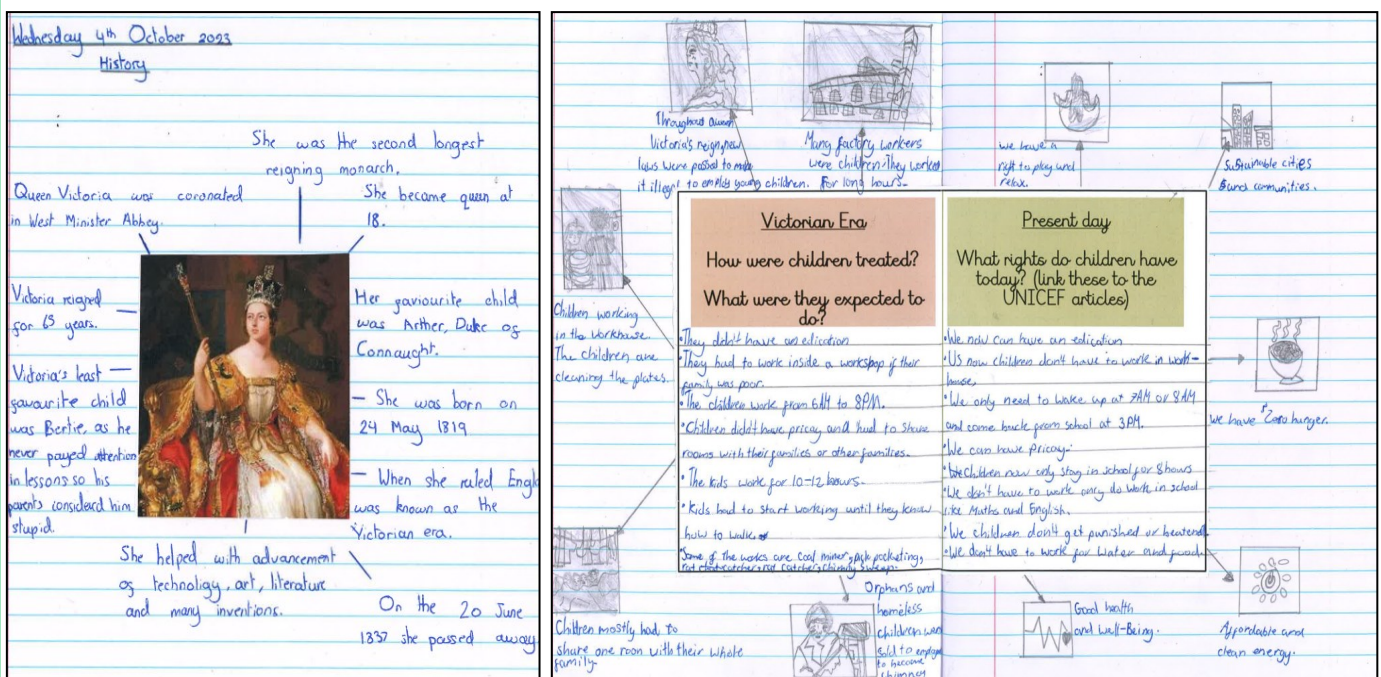 Wednesday 4th October 2023
History
She was the second longest
reigning monarch.
Queen Victoria was coronated
in West Minister Abbey.
She became queen at
18.
Victoria reigned
for 63 years.
Her faviourite child
was Arther, Duke of
Connaught.
Victoria's least
favourite child
was Bertie as he
never payed attention
in lessons so his
parents considerd him
stupid.
She was born on
24 May 1819
When she ruled Engl
was known as the
Victorian era.
She helped with advancement
of technoligy, art, literature
and many inventions.
On the 20 June
1837 she passed away
Throughout Queen
Victoria's reign, new
laws were passed to make
it illegal to employ young children.
Many factory workers
were children. They worked
for long hours.
we have a
right to play and
relax.
Sustainable cities
and communities.
Children working
in the workhouse.
The children are
cleaning the plates.
Victorian Era
How were children treated?
What were they expected to
do?
•They didn't have an edication
•They had to work inside a workspop if their
family was poor.
•The children work from 6AM to 8PM.
•Children didn't have pricay and had to share
rooms with their families or other families.
•The kids work for 10-12 hours.
•Kids had to start working until they know
how to walk.
•Some of the works are coal miner, pick pocketing,
rat catcher, chimney sweep.
Present day
What rights do children have
today? (link these to the
UNICEF articles)
•We now can have an edication
•Us now children don't have to work in work-
house.
•We only need to wake up at 7AM or 8AM
and come back from school at 3PM.
•We can have pricay.
•Children now only stay in school for 8 hours
•We don't have to work only do work in school
like Maths and English.
•We children don't get punished or beatend.
•We don't have to work for water and food.
we have Zero hunger.
Children mostly had to
share one room with their whole
family.
Orphans and
homeless
children were
sold to employe
to become
chimney
Good health
and well-Being.
Affordable and
clean energy.